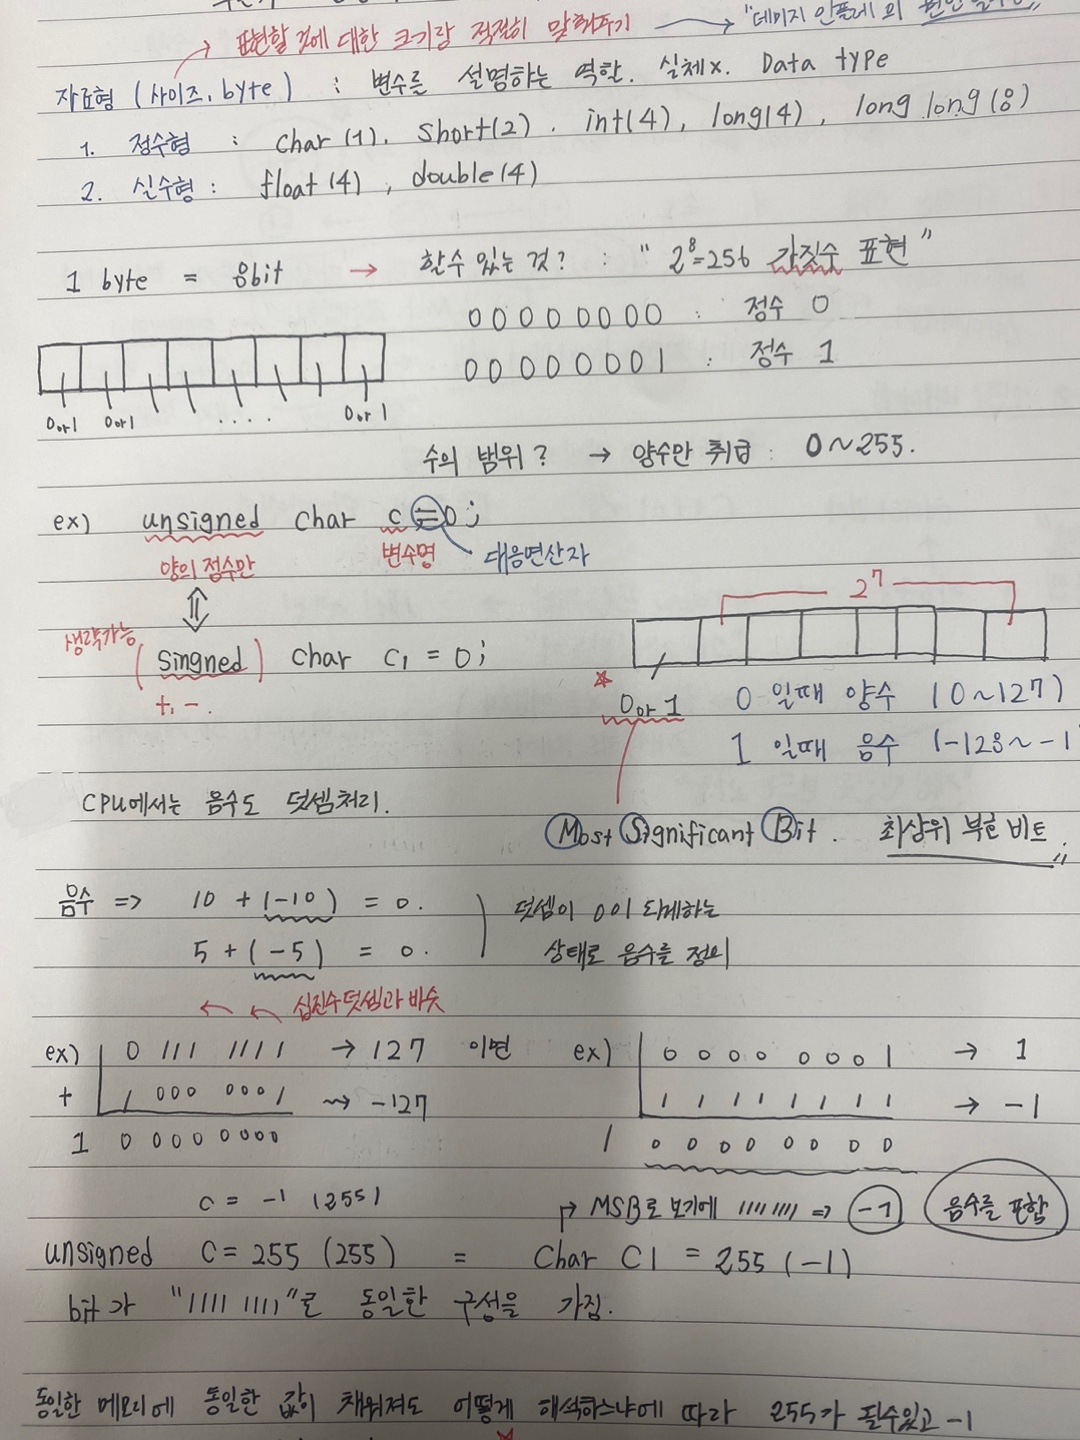 표현할 것에 대한 크기랑 적절히 맞춰주기 → "데미지 인플레의
자료형 (사이즈, byte) : 변수를 설명하는 역할. 실체x. Data type
1. 정수형 : char (1), short(2), int(4), long(4), long long(8)
2. 실수형 : float (4), double(4)
1 byte = 8bit → 할수 있는 것? : "2⁸=256 가짓수 표현"
0 0 0 0 0 0 0 0 : 정수 0
0 0 0 0 0 0 0 1 : 정수 1
0or1 0or1 .... 0or1
수의 범위? → 양수만 취급 : 0~255.
ex) unsigned char c = 0;
양의 정수만 변수명 대응연산자
2⁷
생략가능 (singned) char c1 = 0;
+, -.
0or1 0 일때 양수 (0~127)
1 일때 음수 (-128~-1
CPU에서는 음수도 덧셈처리.
Most Significant Bit. 최상위 부호 비트
음수 => 10 + (-10) = 0. 덧셈이 0이 되게하는
5 + (-5) = 0. 상태로 음수를 정의
← ← 십진수덧셈과 비슷
ex) 0 111 1111 → 127 이면 ex) 0 0 0 0 0 0 0 1 → 1
+ 1 000 0001 → -127 1 1 1 1 1 1 1 1 → -1
1 0 0 0 0 0 0 0 0 1 0 0 0 0 0 0 0 0
c = -1 (255) → MSB로 보기에 1111 1111 => -1 음수를 포함
unsigned C = 255 (255) = Char C1 = 255 (-1)
bit가 "1111 1111"로 동일한 구성을 가짐.
동일한 메모리에 동일한 값이 채워져도 어떻게 해석하느냐에 따라 255가 될수있고 -1